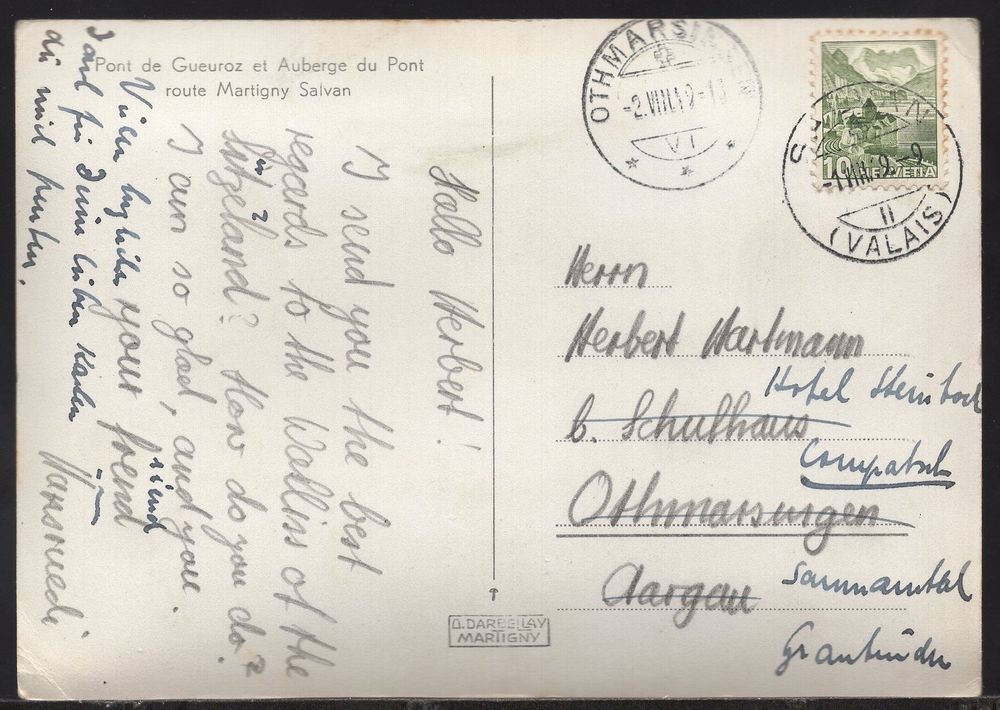 Pont de Gueuroz et Auberge du Pont
route Martigny Salvan
Hallo Herbert!
I send you the best
regards to the Walliss of the
Sutzeland? How do you do?
I am so glad, and you
your frend
Hansruedi
Viele
Dank für Deine lieben Karten
du mich
OTHMARSINGEN
-2.VIII.49-1
VI
SALVAN
-1.VIII.49-9
II
(VALAIS)
10 HELVETIA
Herrn
Herbert Hartmann
b. Schulhaus
Othmarsingen
Aargau
Hotel Steinbock
Compatsch
Samnauntal
Graubünden
O. DARBELLAY
MARTIGNY